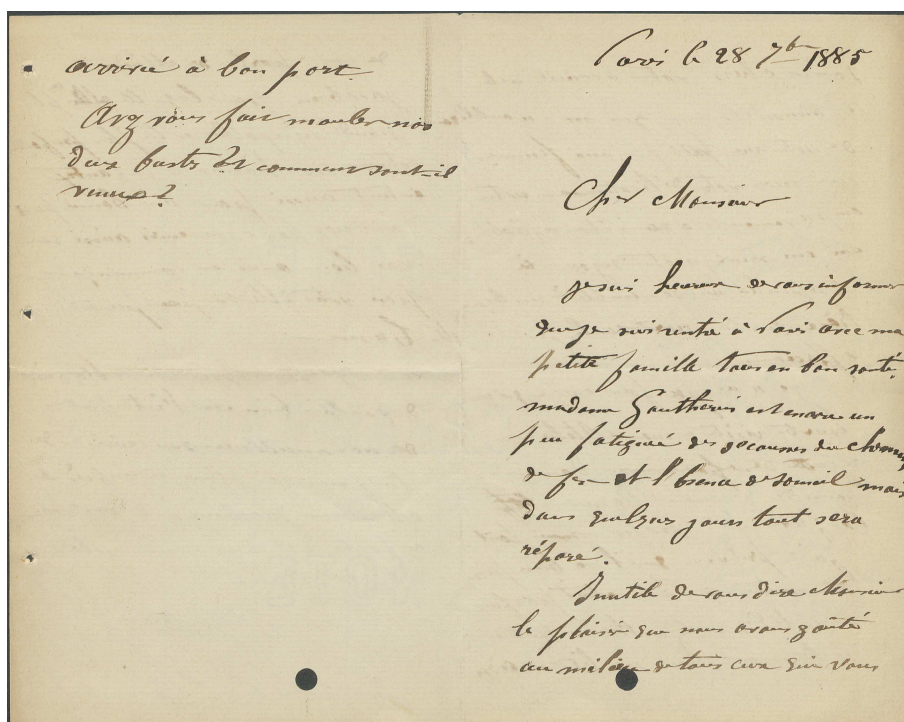 arrivé à bon port.
Avez vous fait mouler nos
deux bustes? et comment sont-il
venus?
Paris le 28 7b 1885
Cher Monsieur
je suis heureux de vous informer
que je suis rentré à Paris avec ma
petite famille tous en bon santé.
madame Gautherin est encore un
peu fatiguée des secousses du chemin
de fer et l'absence de someil mais
dans quelques jours tout sera
réparé.
Inutile de vous dire Monsieur
le plaisir que nous avons goûté
au milieu de tous ceux qui vous